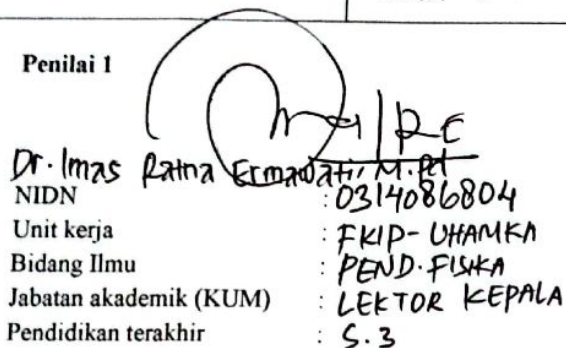 Penilai 1
Dr. Imas Ratna Ermawati, M.Pd
NIDN : 0314086804
Unit kerja : FKIP-UHAMKA
Bidang Ilmu : PEND. FISIKA
Jabatan akademik (KUM) : LEKTOR KEPALA
Pendidikan terakhir : S.3